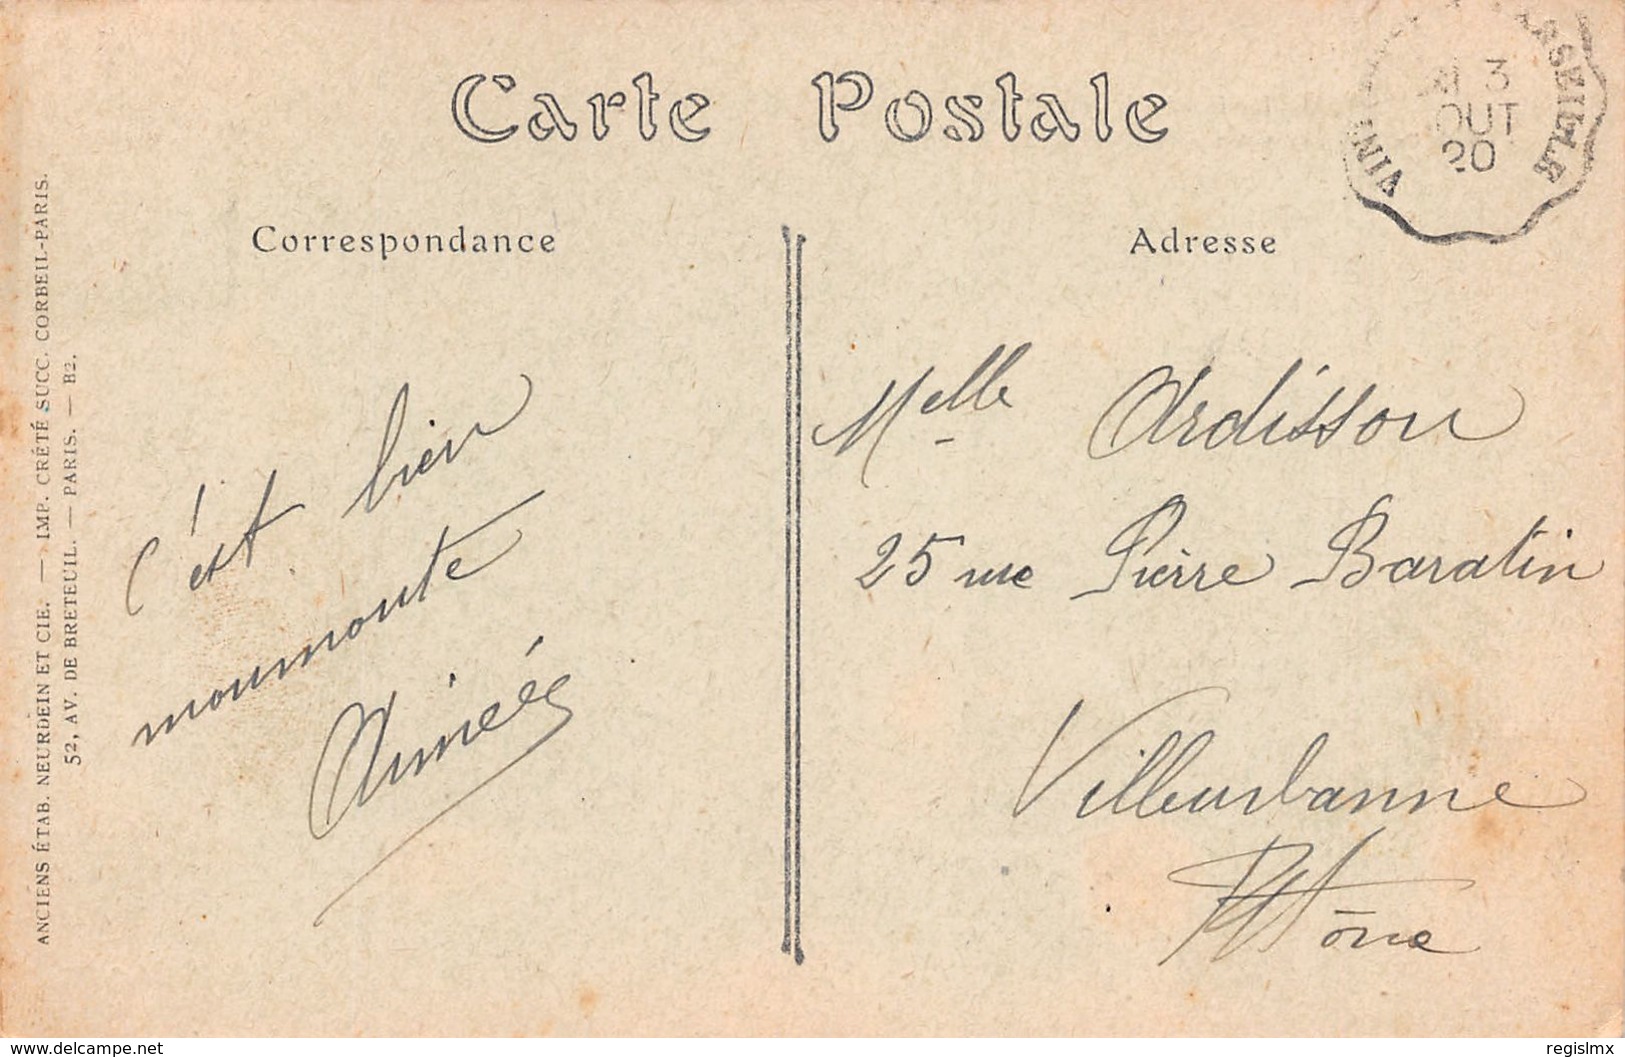 Carte Postale
Correspondance
Adresse
ANCIENS ÉTAB. NEURDEIN ET CIE. — IMP. CRÉTÉ SUCC. CORBEIL-PARIS.
52, AV. DE BRETEUIL. — PARIS. — B2.
c'est bien
moumoute
Aimée
Melle Ardisson
25 rue Pierre Baratin
Villeurbanne
Rhône
3
OUT
20
www.delcampe.net
regislmx